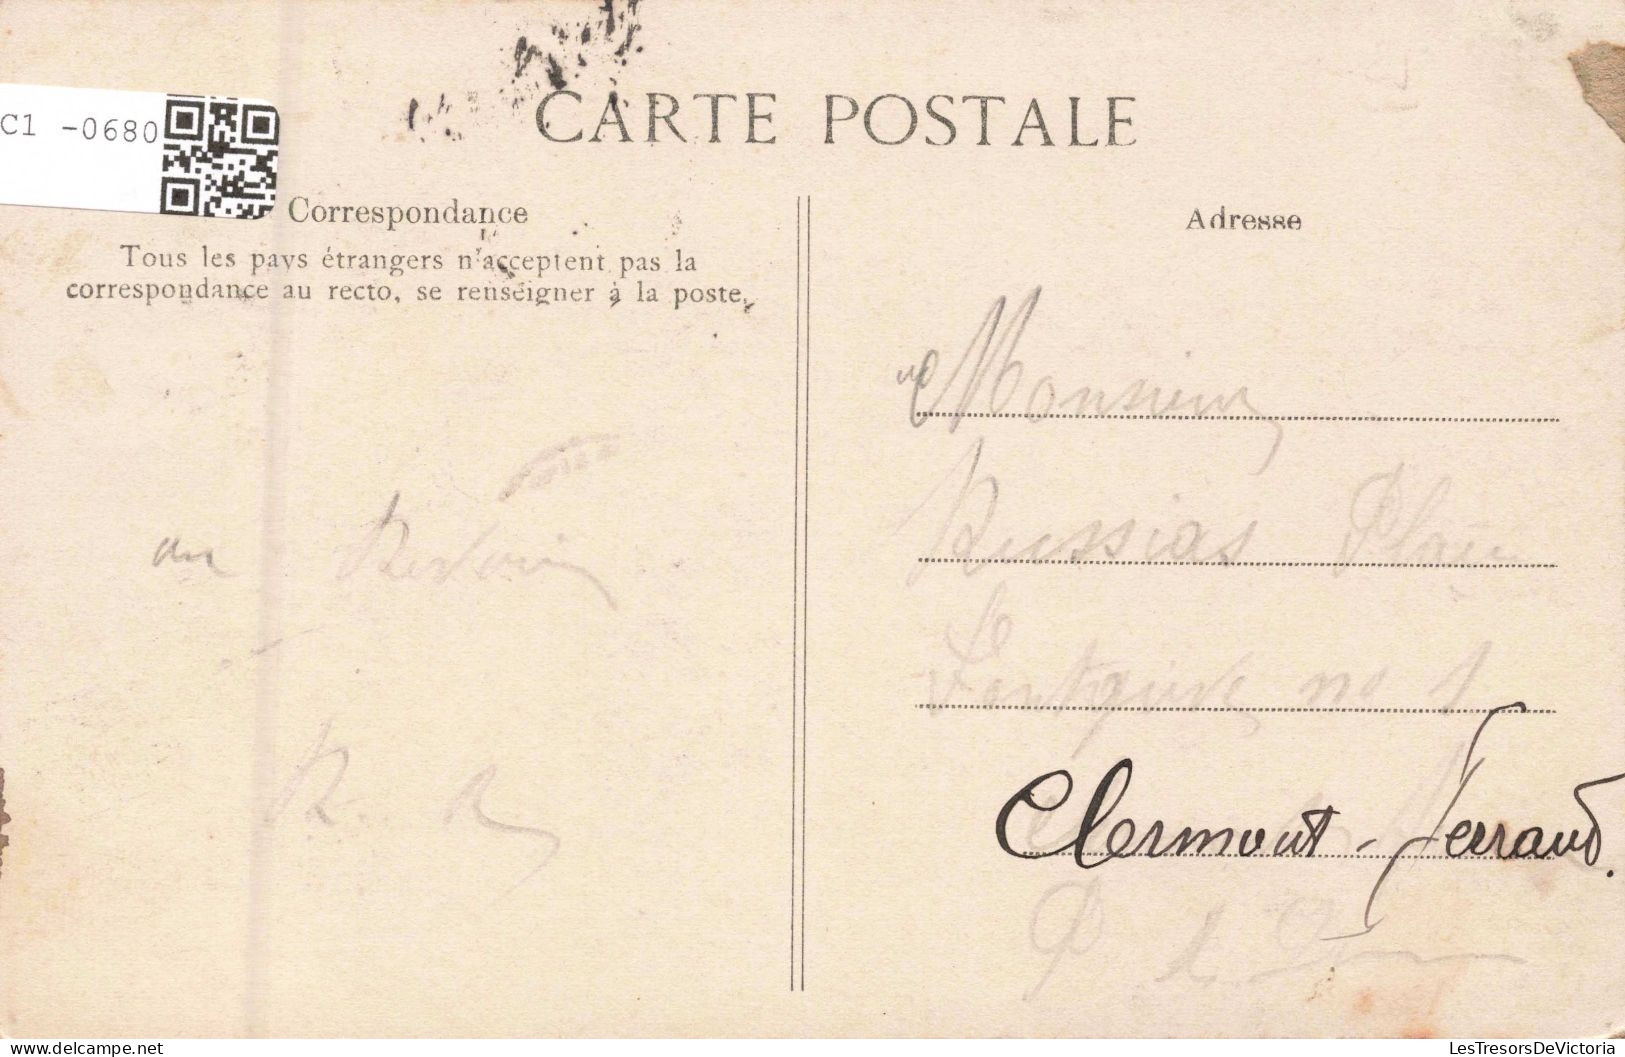 C1 -0680
CARTE POSTALE
Correspondance
Tous les pays étrangers n'acceptent pas la
correspondance au recto, se renseigner à la poste.
Adresse
Monsieur
Russias Place
no 1
Clermont-Ferrand.
P de
au Revoir
R. R
LesTresorsDeVictoria